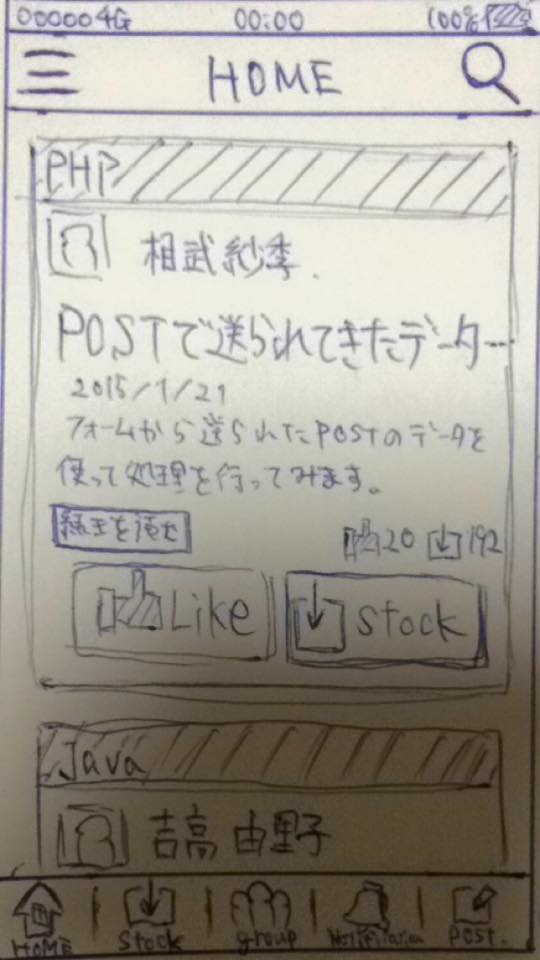 000004G 00:00 100%
HOME
PHP
相武紗季.
POSTで送られてきたデータ…
2015/1/21
フォームから送られたPOSTのデータを
使って処理を行ってみます。
続きを読む
20 192
Like stock
Java
吉高 由里子
HOME stock group Notification Post.